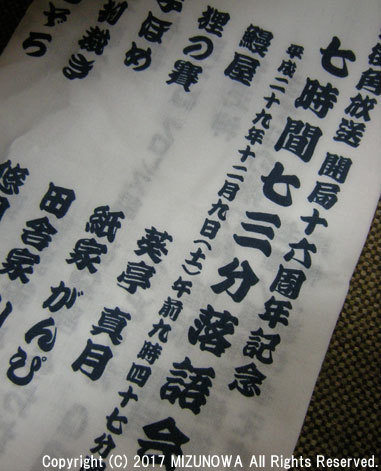 放送 開局十六周年記念
七時間七三分落語会
平成二十九年十二月九日(土)午前九時四十七分
鰻屋 葵亭 真月
狸の賽 紙家 がんぴ
子ほめ 田舎家
Copyright (C) 2017 MIZUNOWA All Rights Reserved